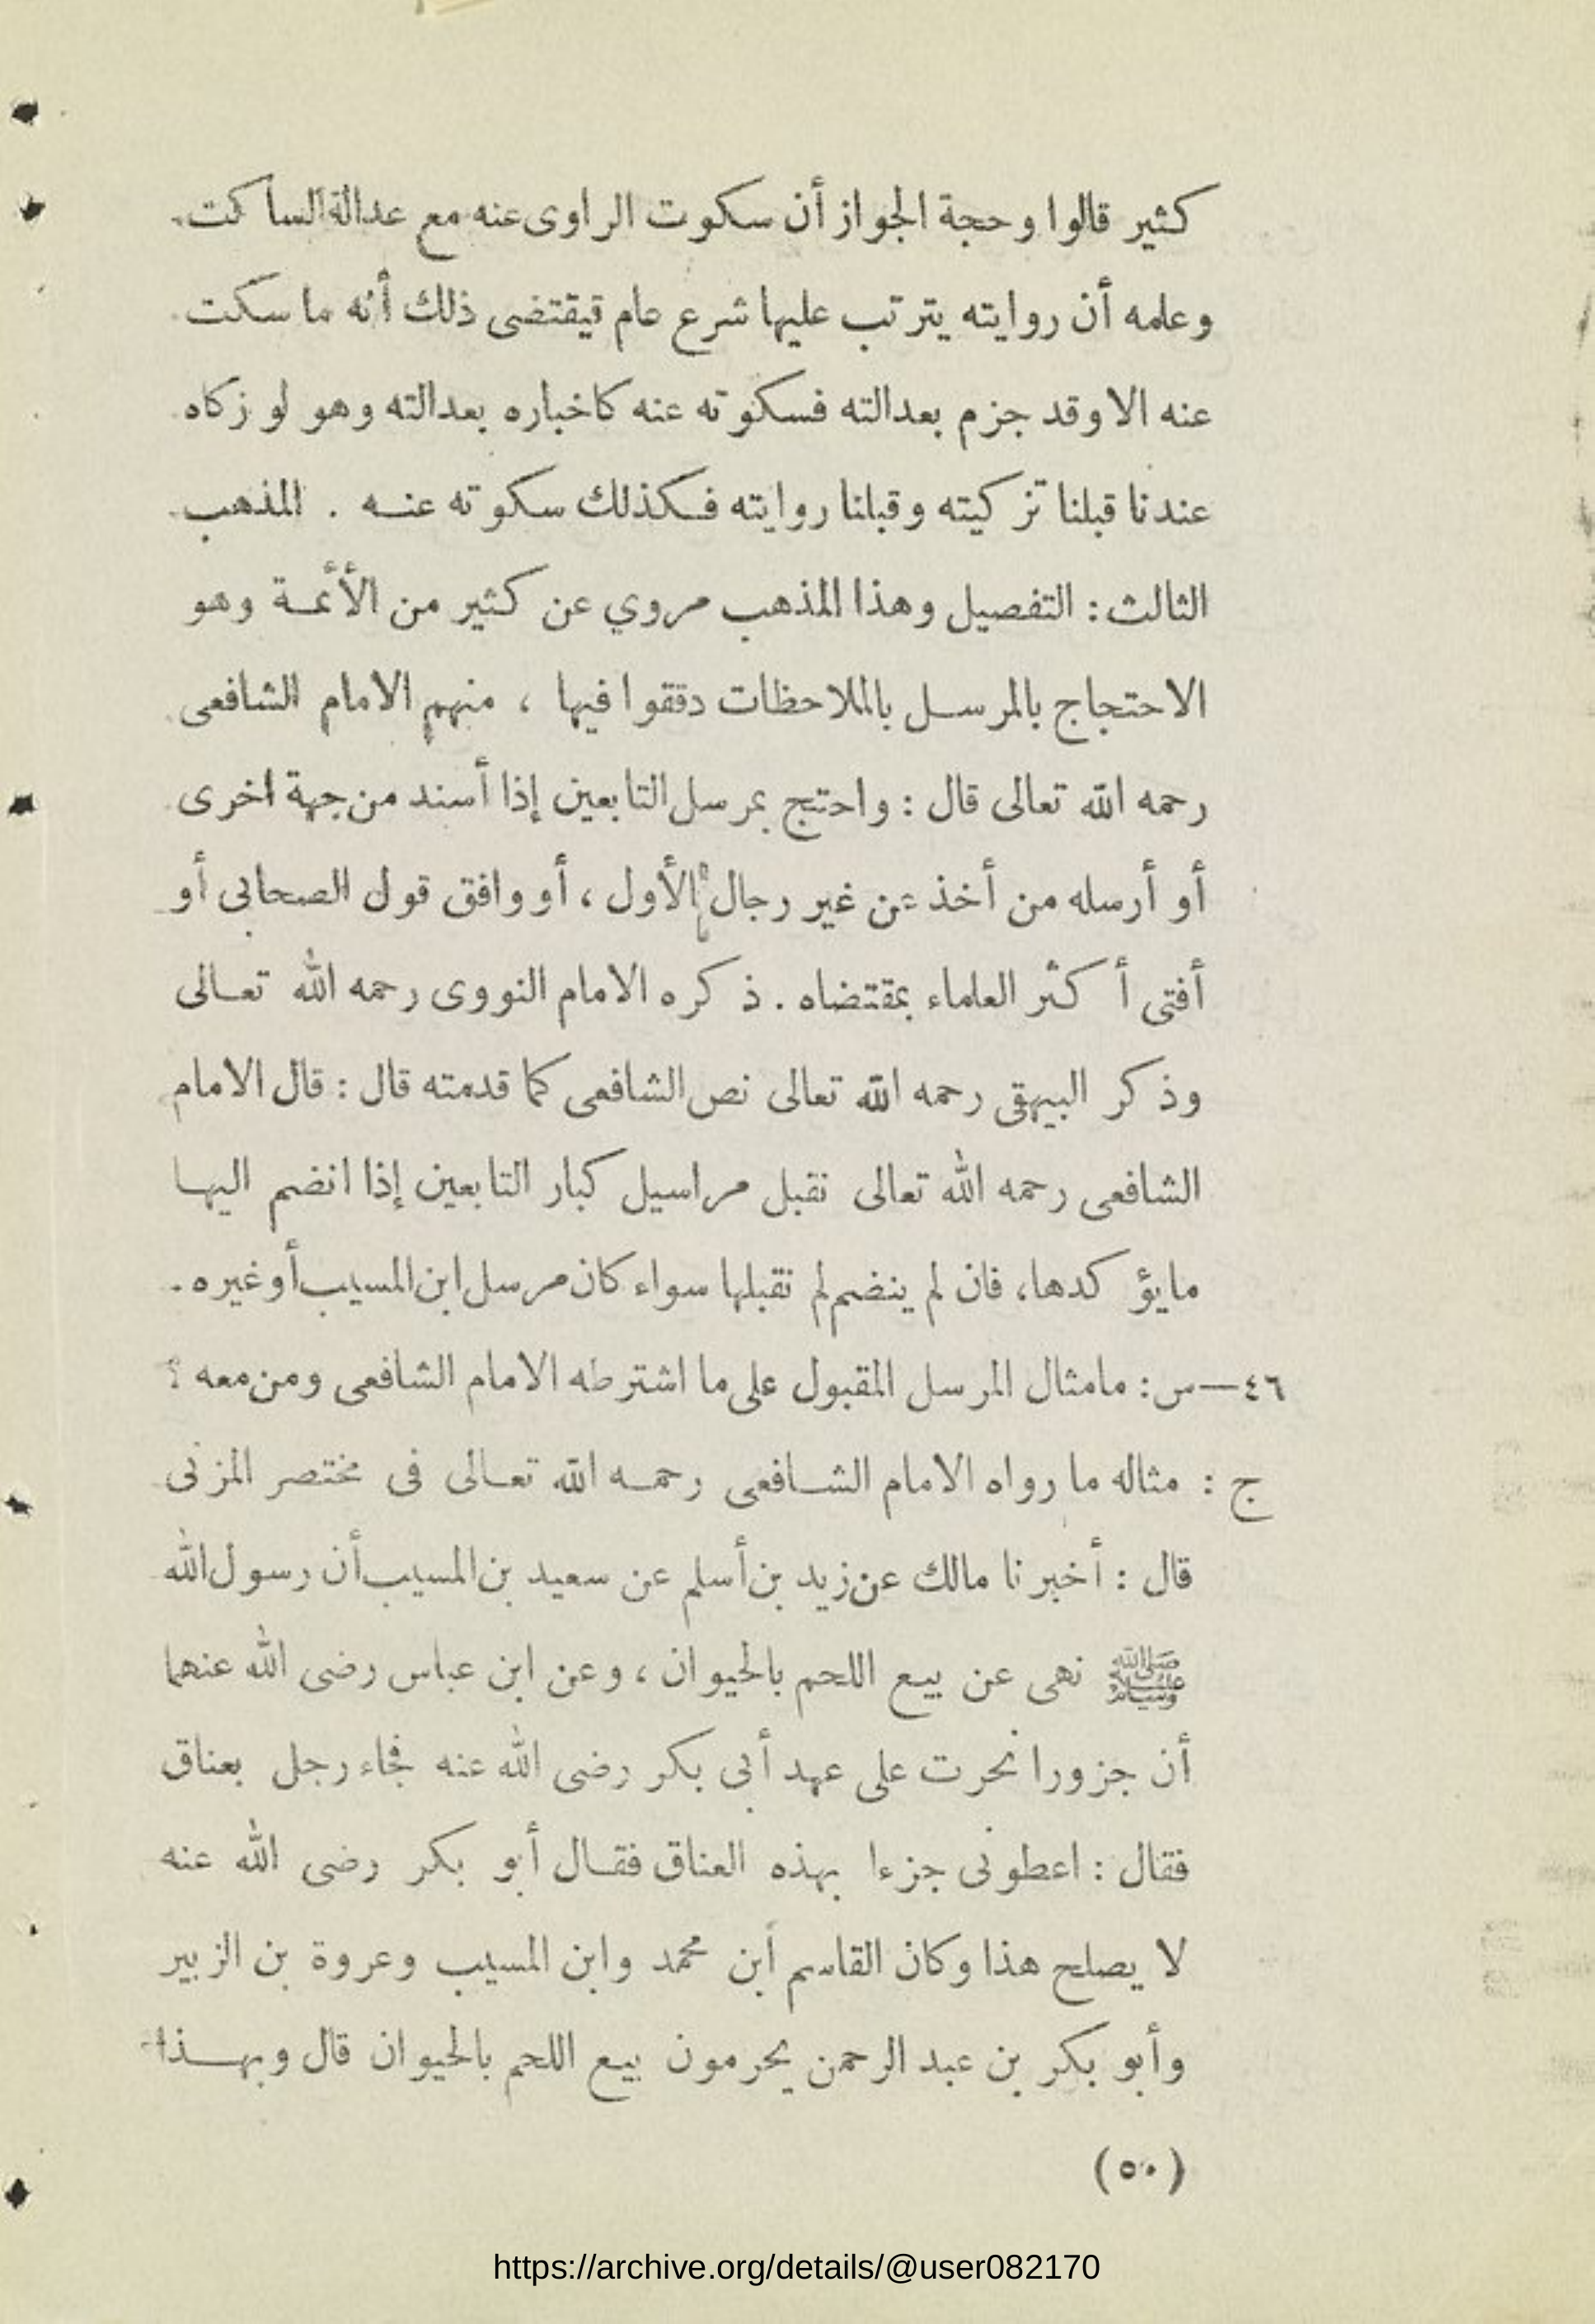 كثير قالوا وحجة الجواز أن سكوت الراوى عنه مع عدالة الساكت
وعلمه أن روايته يترتب عليها شرع عام قيقتضى ذلك أنه ما سكت
عنه الا وقد جزم بعدالته فسكوته عنه كاخباره بعدالته وهو لو زكاه
عندنا قبلنا تزكيته وقبلنا روايته فكذلك سكوته عنه . المذهب
الثالث : التفصيل وهذا المذهب مروي عن كثير من الأئمة وهو
الاحتجاج بالمرسل بالملاحظات دققوا فيها ، منهم الامام الشافعى
رحمه الله تعالى قال : واحتج بمرسل التابعين إذا أسند من جهة اخرى
أو أرسله من أخذ عن غير رجال الأول ، أو وافق قول الصحابى أو
أفتى أكثر العلماء بمقتضاه . ذكره الامام النووى رحمه الله تعالى
وذكر البيهقى رحمه الله تعالى نص الشافعى كما قدمته قال : قال الامام
الشافعى رحمه الله تعالى نقبل مراسيل كبار التابعين إذا انضم اليها
مايؤكدها، فان لم ينضم لم نقبلها سواء كان مرسل ابن المسيب أو غيره .
٤٦—س: مامثال المرسل المقبول على ما اشترطه الامام الشافعى ومن معه ؟
ج : مثاله ما رواه الامام الشافعى رحمه الله تعالى فى مختصر المزنى
قال : أخبرنا مالك عن زيد بن أسلم عن سعيد بن المسيب أن رسول الله
ﷺ نهى عن بيع اللحم بالحيوان ، وعن ابن عباس رضى الله عنهما
أن جزورا نحرت على عهد أبى بكر رضى الله عنه فجاء رجل بعناق
فقال : اعطونى جزءا بهذه العناق فقال أبو بكر رضى الله عنه
لا يصلح هذا وكان القاسم أبن محمد وابن المسيب وعروة بن الزبير
وأبو بكر بن عبد الرحمن يحرمون بيع اللحم بالحيوان قال وبهذا
(٥٠)
https://archive.org/details/@user082170